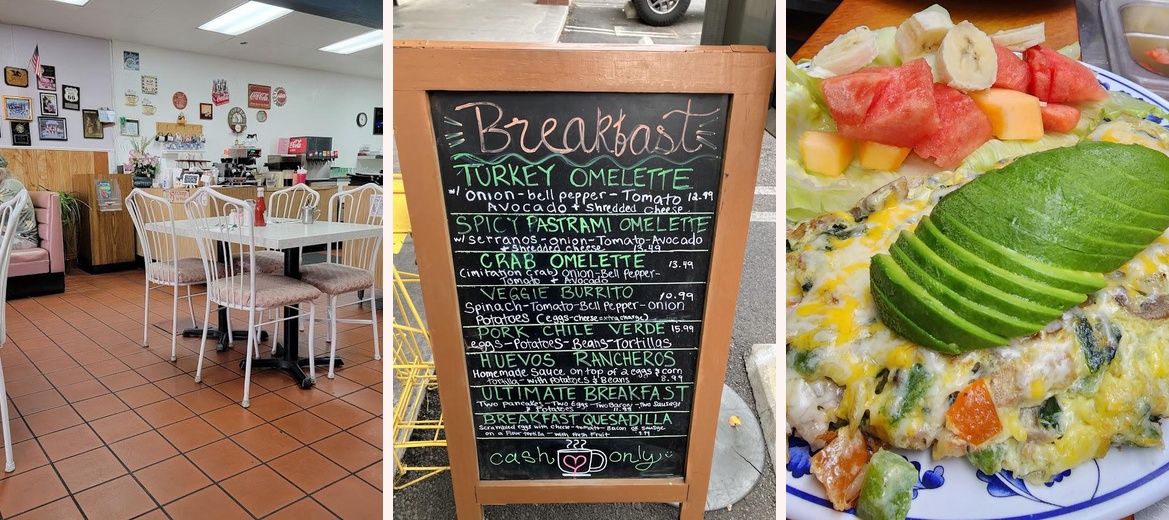 Coca-Cola
Breakfast
TURKEY OMELETTE
w/ onion-bell pepper-Tomato 12.99
Avocado + shredded cheese
SPICY PASTRAMI OMELETTE
w/serranos-onion-Tomato-Avocado
+ shredded cheese 13.49
CRAB OMELETTE 13.49
(imitation crab) onion-Bell Pepper-
Tomato + Avocado
VEGGIE BURRITO 10.99
Spinach-Tomato-Bell Pepper-onion
Potatoes (eggs-cheese extra charge)
PORK CHILE VERDE 15.99
eggs-Potatoes-Beans-Tortillas
HUEVOS RANCHEROS
Homemade Sauce on top of 2 eggs & corn
tortilla-with potatoes & Beans 8.99
ULTIMATE BREAKFAST
Two pancakes-Two Eggs-Two Bacon-two Sausage
& Potatoes
BREAKFAST QUESADILLA
Scrambled eggs with cheese-tomato-Bacon or sausage
on a Flour tortilla-with Fresh Fruit
???
cash only